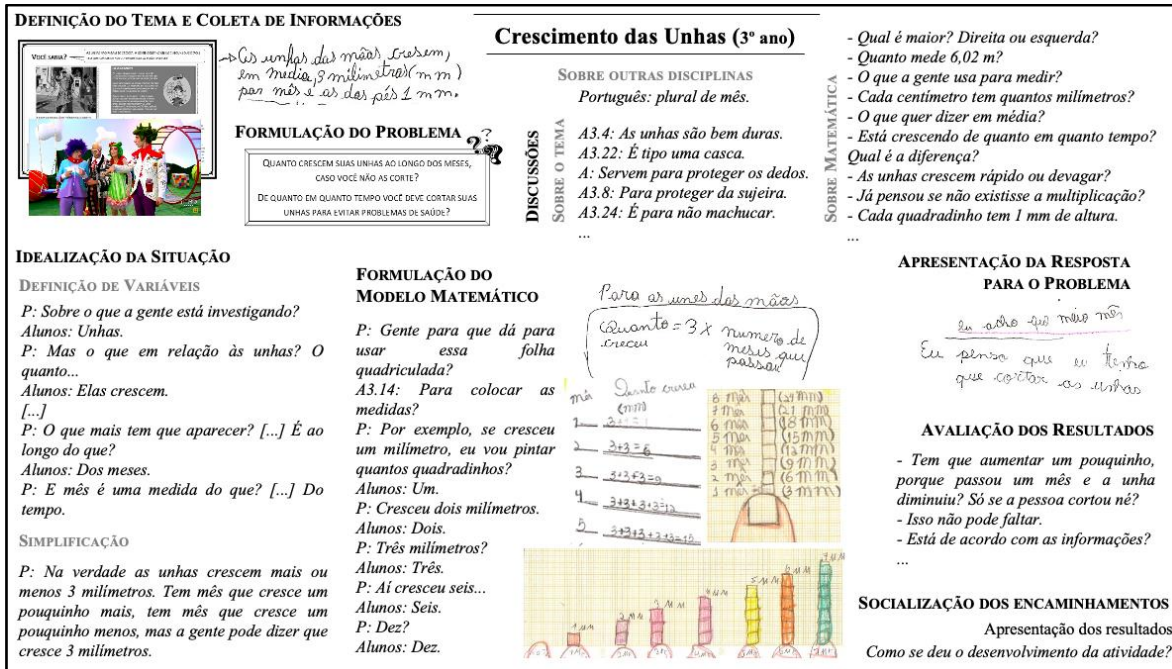 DEFINIÇÃO DO TEMA E COLETA DE INFORMAÇÕES
VOCÊ SABIA?
→ As unhas das mãos cresem,
em media, 3 milimetros (mm)
por mês e as dos pés 1 mm.
FORMULAÇÃO DO PROBLEMA
QUANTO CRESCEM SUAS UNHAS AO LONGO DOS MESES,
CASO VOCÊ NÃO AS CORTE?
DE QUANTO EM QUANTO TEMPO VOCÊ DEVE CORTAR SUAS
UNHAS PARA EVITAR PROBLEMAS DE SAÚDE?
Crescimento das Unhas (3º ano)
DISCUSSÕES
SOBRE OUTRAS DISCIPLINAS
Português: plural de mês.
SOBRE O TEMA
A3.4: As unhas são bem duras.
A3.22: É tipo uma casca.
A: Servem para proteger os dedos.
A3.8: Para proteger da sujeira.
A3.24: É para não machucar.
...
SOBRE MATEMÁTICA
- Qual é maior? Direita ou esquerda?
- Quanto mede 6,02 m?
- O que a gente usa para medir?
- Cada centímetro tem quantos milímetros?
- O que quer dizer em média?
- Está crescendo de quanto em quanto tempo?
Qual é a diferença?
- As unhas crescem rápido ou devagar?
- Já pensou se não existisse a multiplicação?
- Cada quadradinho tem 1 mm de altura.
...
IDEALIZAÇÃO DA SITUAÇÃO
DEFINIÇÃO DE VARIÁVEIS
P: Sobre o que a gente está investigando?
Alunos: Unhas.
P: Mas o que em relação às unhas? O
quanto...
Alunos: Elas crescem.
[...]
P: O que mais tem que aparecer? [...] É ao
longo do que?
Alunos: Dos meses.
P: E mês é uma medida do que? [...] Do
tempo.
SIMPLIFICAÇÃO
P: Na verdade as unhas crescem mais ou
menos 3 milímetros. Tem mês que cresce um
pouquinho mais, tem mês que cresce um
pouquinho menos, mas a gente pode dizer que
cresce 3 milímetros.
FORMULAÇÃO DO
MODELO MATEMÁTICO
P: Gente para que dá para
usar essa folha
quadriculada?
A3.14: Para colocar as
medidas?
P: Por exemplo, se cresceu
um milímetro, eu vou pintar
quantos quadradinhos?
Alunos: Um.
P: Cresceu dois milímetros.
Alunos: Dois.
P: Três milímetros?
Alunos: Três.
P: Aí cresceu seis...
Alunos: Seis.
P: Dez?
Alunos: Dez.
Para as unes das mãos
Quanto = 3 X numero de
creceu meses que
passau
mês Quanto creceu
(mm)
2 3+3=6
3 3+3+3=9
4 3+3+3+3=12
5 3+3+3+3+3=15
8 mês (24 mm)
7 mês (21 mm)
6 mês (18 mm)
5 mês (15 mm)
4 mês (12 mm)
3 mês (9 mm)
2 mês (6 mm)
1 mês (3 mm)
APRESENTAÇÃO DA RESPOSTA
PARA O PROBLEMA
eu acho qui meio mês
Eu penso que eu tenho
que cortar as unhas
AVALIAÇÃO DOS RESULTADOS
- Tem que aumentar um pouquinho,
porque passou um mês e a unha
diminuiu? Só se a pessoa cortou né?
- Isso não pode faltar.
- Está de acordo com as informações?
...
SOCIALIZAÇÃO DOS ENCAMINHAMENTOS
Apresentação dos resultados
Como se deu o desenvolvimento da atividade?